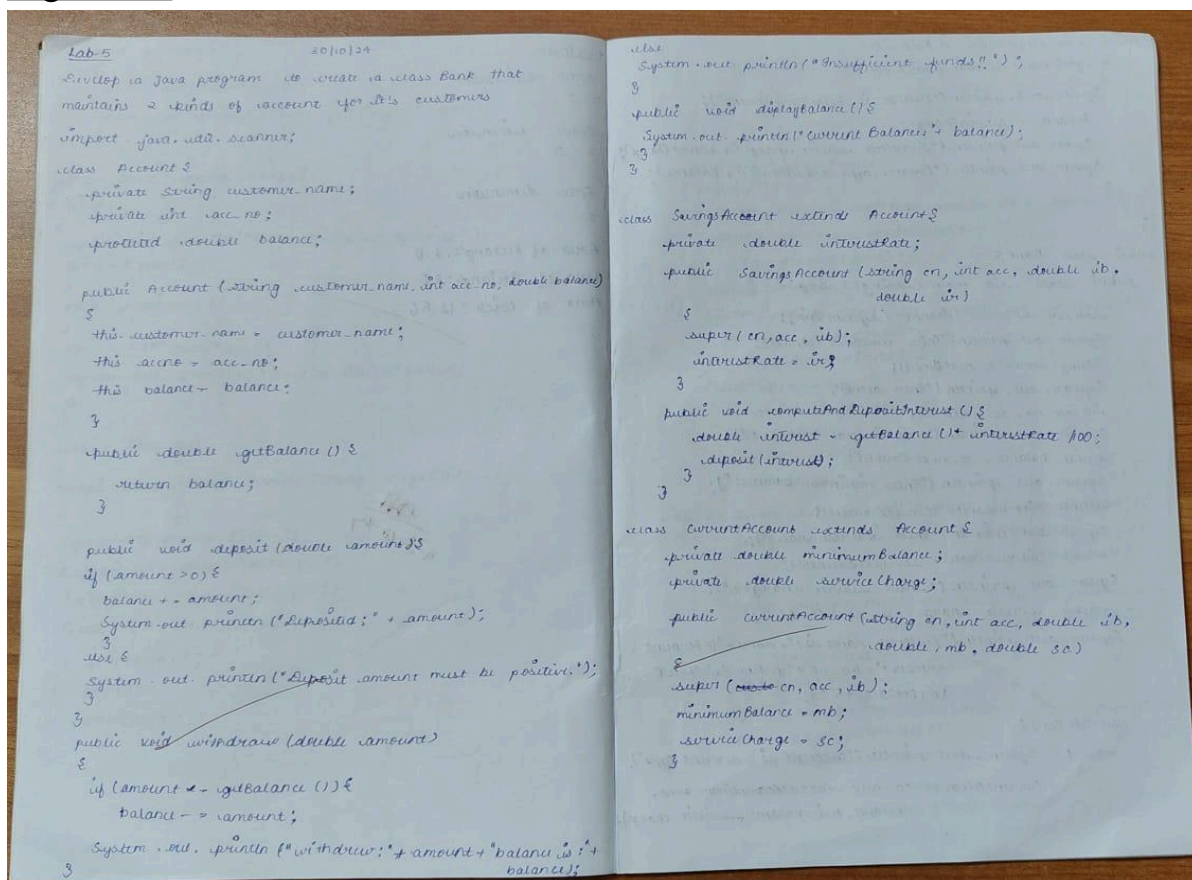 Lab-5 30/10/24
Develop a Java program to create a class Bank that
maintains 2 kinds of account for it's customers
import java.util.scanner;
class Account {
private String customer_name;
private int acc_no;
protected double balance;
public Account (string customer_name, int acc_no, double balance)
{
this.customer_name = customer_name;
this accno = acc_no;
this balance = balance;
}
public double getBalance () {
return balance;
}
public void deposit (double amount) {
if (amount >0) {
balance + = amount;
System.out.println ("Deposited:" + amount);
}
else {
System.out.println ("Deposit amount must be positive.");
}
}
public void withdraw (double amount)
{
if (amount <= getBalance ()) {
balance - = amount;
System.out.println ("withdrew:" + amount + "balance is:" +
balance);
}
else
System.out println ("Insufficient funds!!");
}
public void displayBalance () {
System.out.println ("Current Balance:" + balance);
}
}
class SavingsAccount extends Account {
private double interestRate;
public SavingsAccount (string cn, int acc, double ib,
double ir)
{
super (cn, acc, ib);
interestRate = ir;
}
public void computeAndDepositInterest () {
double interest = getBalance () * interestRate /100;
deposit (interest);
}
}
class CurrentAccount extends Account {
private double minimumBalance;
private double serviceCharge;
public currentAccount (string cn, int acc, double ib,
double, mb, double sc)
{
super (cn, acc, ib);
minimumBalance = mb;
serviceCharge = sc;
}